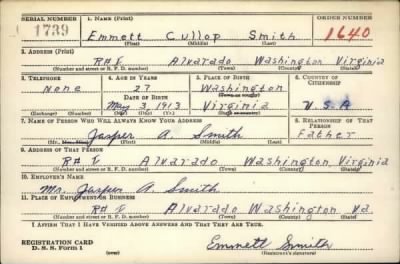 SERIAL NUMBER 1. NAME (Print) ORDER NUMBER
1739 Emmett Cullop Smith 1640
(First) (Middle) (Last)
2. ADDRESS (Print)
R# 1 Alvarado Washington Virginia
(Number and street or R. F. D. number) (Town) (County) (State)
3. TELEPHONE 4. AGE IN YEARS 5. PLACE OF BIRTH 6. COUNTRY OF CITIZENSHIP
None 27 Washington
DATE OF BIRTH (Town or county)
May 3, 1913 Virginia U.S.A
(Exchange) (No.) (Mo.) (Day) (Yr.) (State or country)
7. NAME OF PERSON WHO WILL ALWAYS KNOW YOUR ADDRESS 8. RELATIONSHIP OF THAT PERSON
Jasper A. Smith Father
(Mr., Mrs., Miss) (First) (Middle) (Last)
9. ADDRESS OF THAT PERSON
R# 1 Alvarado Washington, Virginia
(Number and street or R. F. D. number) (Town) (County) (State)
10. EMPLOYER'S NAME
Mr. Jasper A. Smith
11. PLACE OF EMPLOYMENT OR BUSINESS
R# 1 Alvarado Washington Va
(Number and street or R. F. D. number) (Town) (County) (State)
I AFFIRM THAT I HAVE VERIFIED ABOVE ANSWERS AND THAT THEY ARE TRUE.
REGISTRATION CARD
D. S. S. Form 1 Emmett Smith
(Registrant's signature)